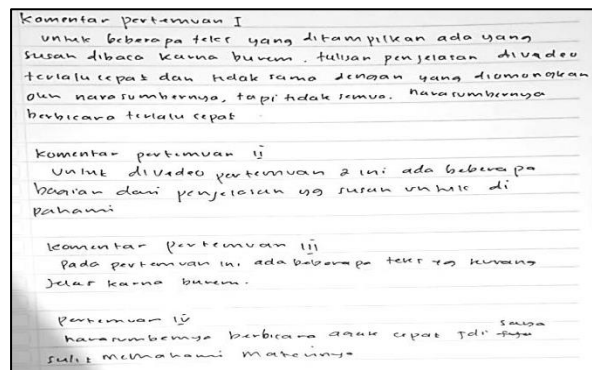 Komentar pertemuan I
untuk beberapa teks yang ditampilkan ada yang
susah dibaca karna burem. tulisan penjelasan divedeo
terlalu cepat dan tidak sama dengan yang diomongkan
oleh narasumbernya, tapi tidak semua. narasumbernya
berbicara terlalu cepat
Komentar pertemuan ii
Untuk divedeo pertemuan 2 ini ada beberapa
bagian dari penjelasan yg susah untuk di
pahami
Komentar pertemuan iii
Pada pertemuan ini ada beberapa teks yg kurang
jelas karna burem.
Pertemuan iv
narasumbernya berbicara agak cepat jdi saya
sulit memahami materinya